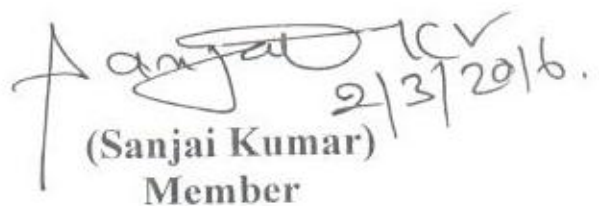 Sanjai Kr
2/3/2016.
(Sanjai Kumar)
Member